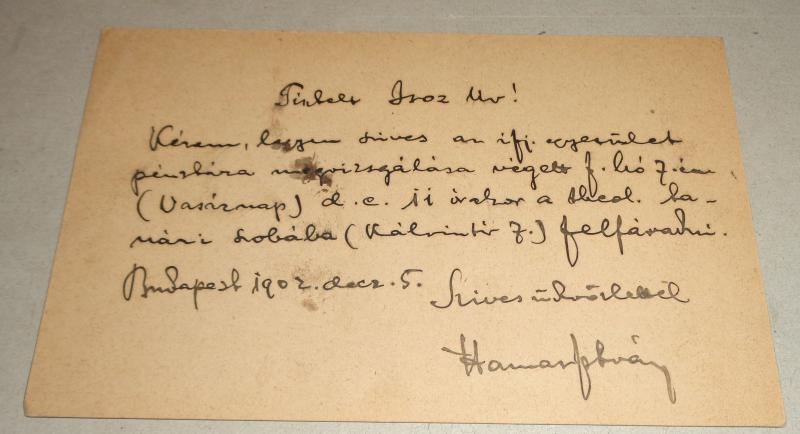 Tisztelt Isoz Úr!
Kérem, legyen szives az ifj. egyesület
pénztára megvizsgálása végett f. hó 7.-én
(Vasárnap) d. e. 11 órakor a theol. ta-
nári szobába (Kálvintér 7.) felfáradni.
Budapest 1902. decz. 5. Szives üdvözlettel
Hamar István